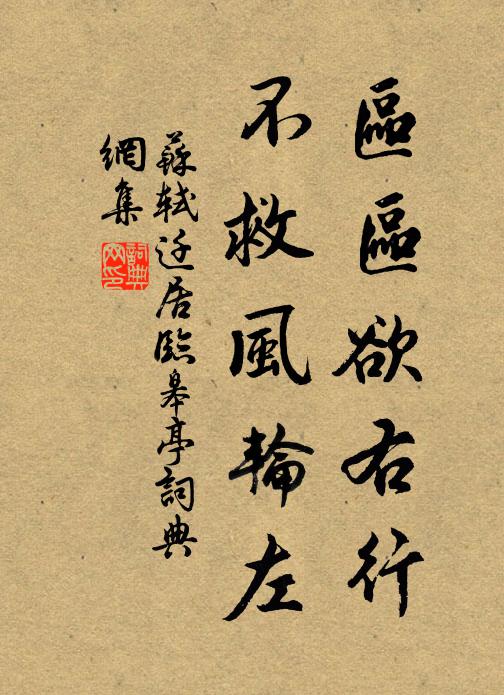 區區欲右行
不救風輪左
蘇軾迁居臨皋亭詞典
網集
詞典
网印